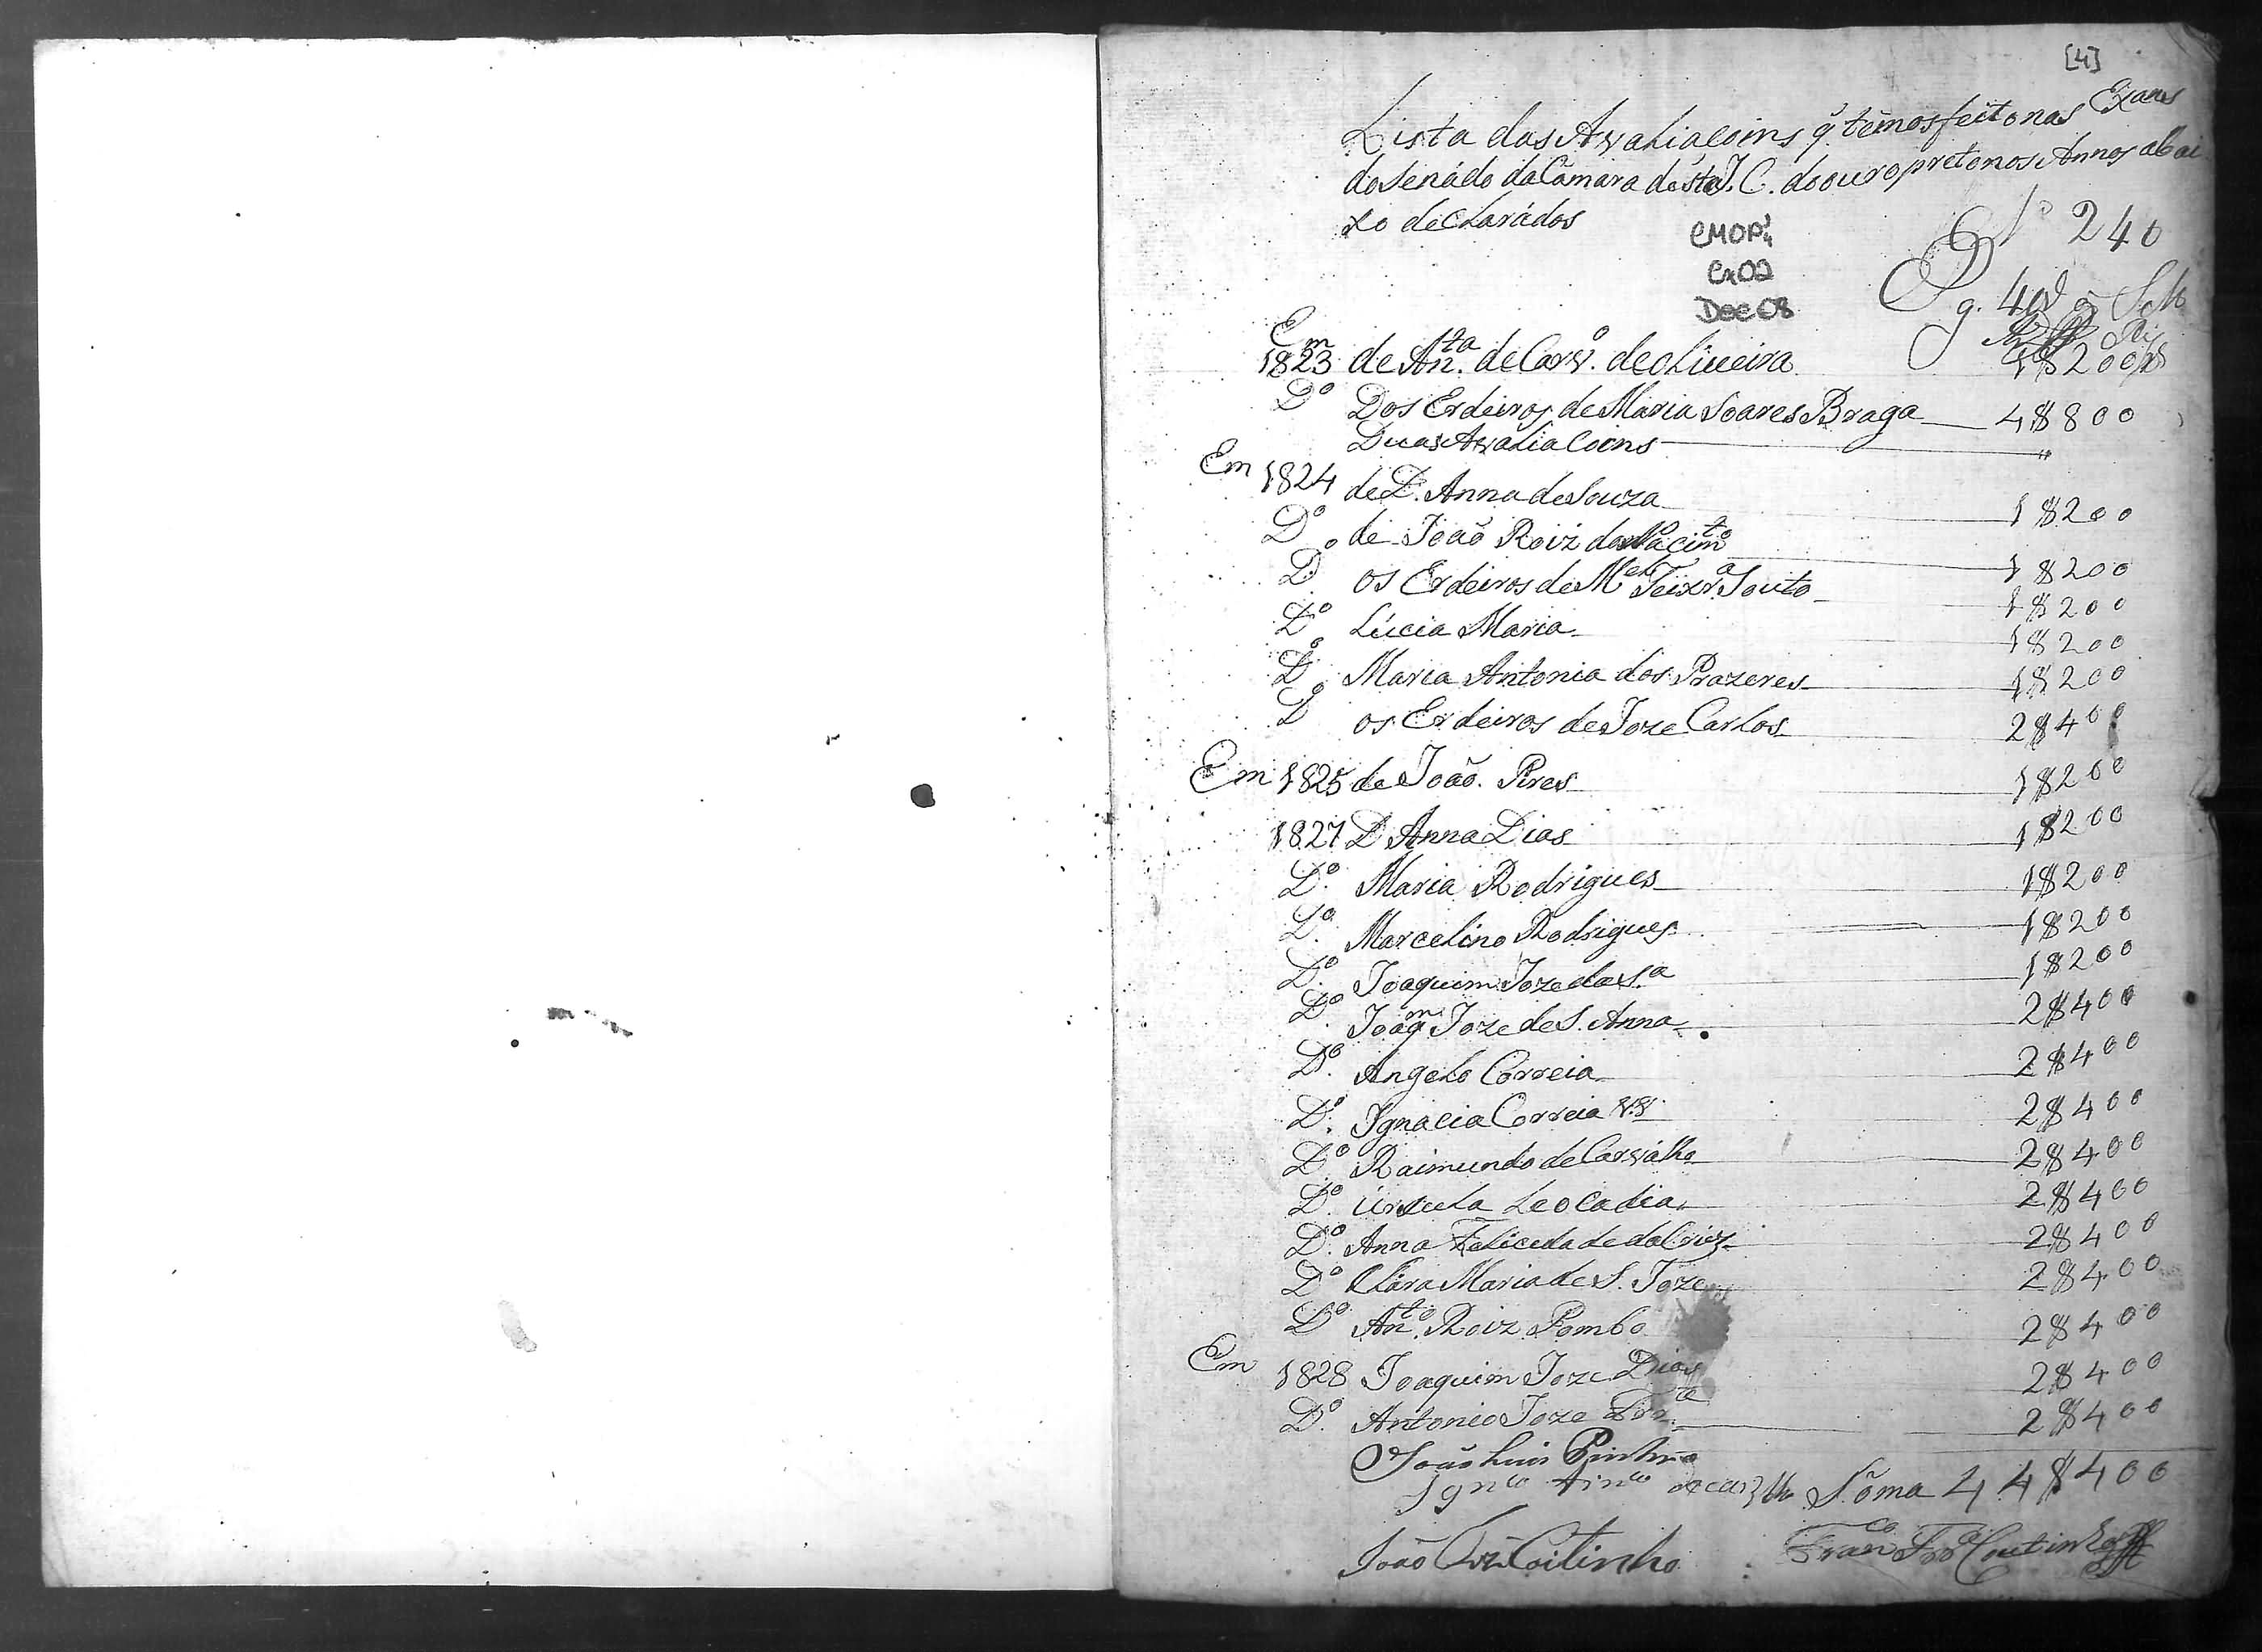 [4]
Lista das Avaliacoins q̃ temos feito nas
do Senádo da Câmara désta I. C. do ouro preto nos Annos abai
xo declarádos
CMOP
Cx02
Doc 08
Nº 240
Pg.
Em
1823 de Anta. de Carvo. de oliueira 1$200
Do Dos Erdeiros de Maria Soares Braga 4$800
Duas Avaliacoins "
Em 1824 de D. Anna de Souza 1$200
Do de João Roiz do Nacimto 1$200
Do os Erdeiros de Mel Teixra. Souto 1$200
Do Lúcia Maria 1$200
Do Maria Antonia dos Prazeres 1$200
Do os Erdeiros de Joze Carlos 2$400
Em 1825 de João. Pires 1$200
1827 D Anna Dias 1$200
Do. Maria Rodrigues 1$200
Do. Marcelino Rodrigues 1$200
Do. Joaquim Joze da Sa 1$200
Do. Joaqm Joze de S. Anna 2$400
Do. Angelo Correia 2$400
Do. Ignacia Correia 2$400
Do. Raimundo de Carválho 2$400
Do. úrsula Leocadia 2$400
Do. Anna Felicidade da Cruz 2$400
Do Clara Maria de S. Joze 2$400
Do Anto. Roiz Pombo 2$400
Em 1828 Joaquim Joze Dias 2$400
Do. Antonio Joze 2$400
João Luis Pinhro
Sõma 44$400
João Coitinho
Franco Coutinho